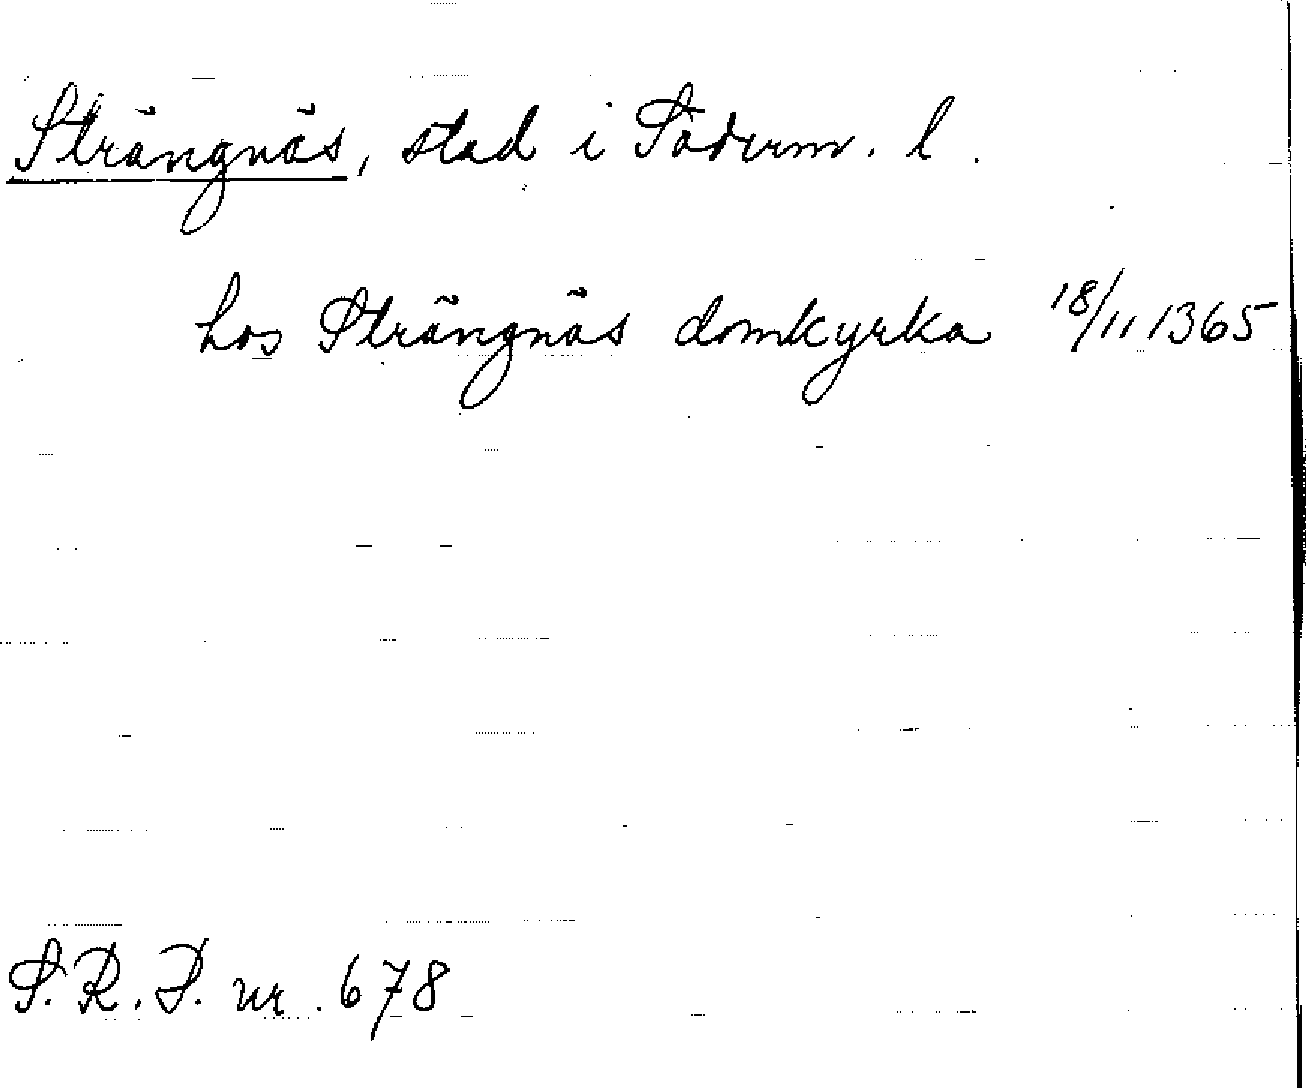 Strängnäs, stad i Söderm. l.
hos Strängnäs domkyrka 18/11 1365
S. R. P. nr. 678